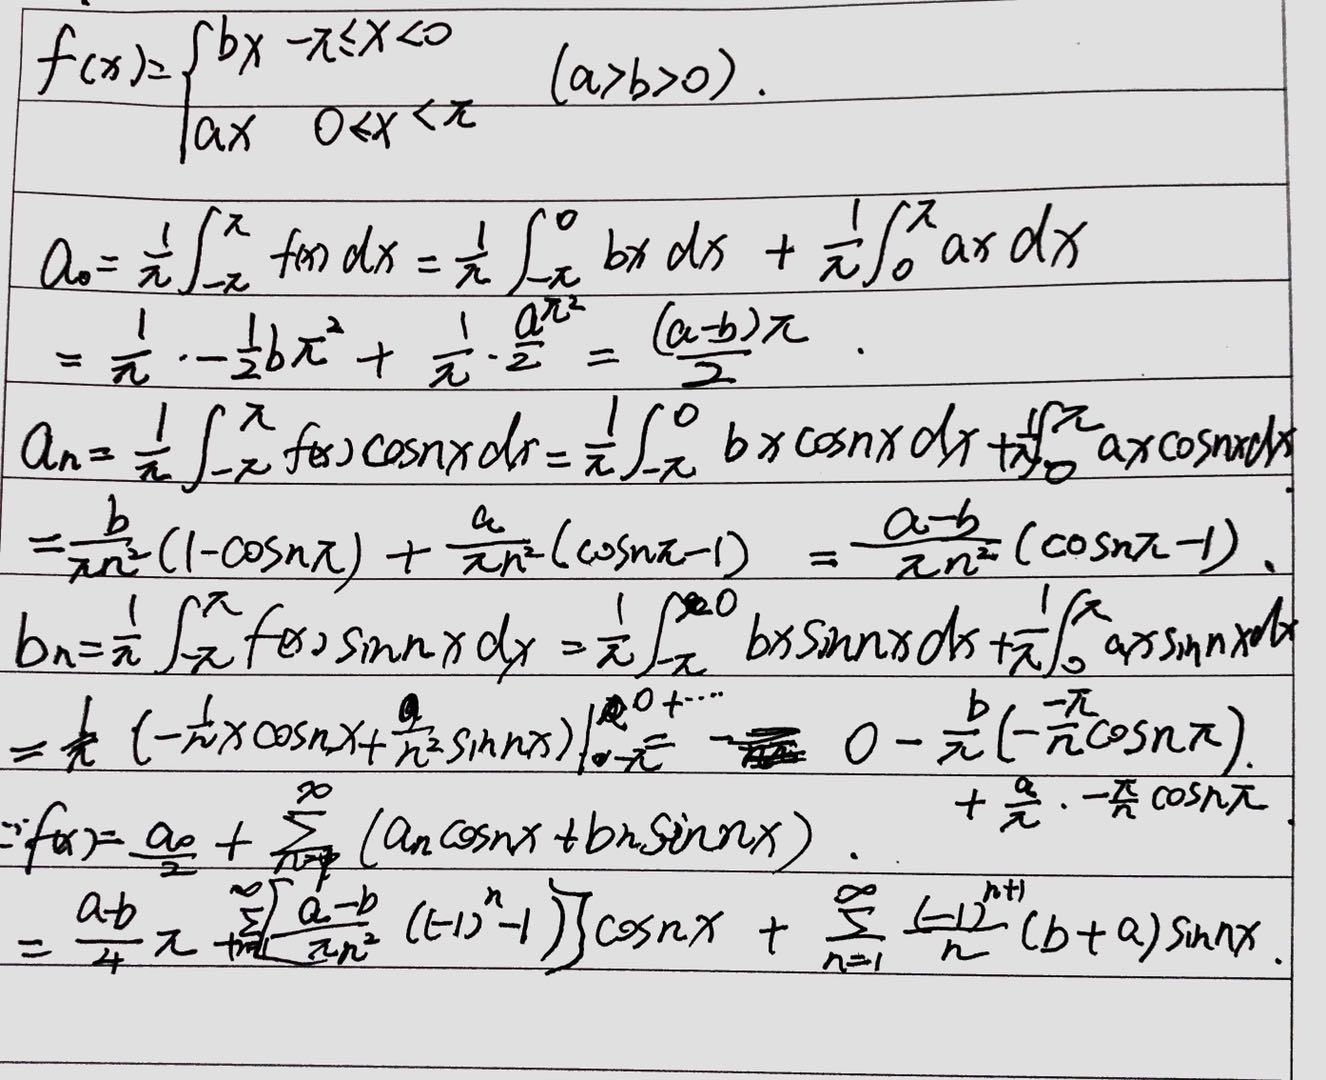 f(x)={bx -π≤x<0
ax 0≤x<π (a>b>0).
a₀=1/π ∫_{-π}^{π} f(x)dx = 1/π ∫_{-π}^{0} bx dx + 1/π ∫_{0}^{π} ax dx
= 1/π · -1/2 bπ² + 1/π · aπ²/2 = (a-b)π/2 .
aₙ= 1/π ∫_{-π}^{π} f(x)cosnxdx = 1/π ∫_{-π}^{0} bxcosnxdx + 1/π ∫_{0}^{π} axcosnxdx
= b/πn² (1-cosnπ) + a/πn² (cosnπ-1) = a-b/πn² (cosnπ-1).
bₙ= 1/π ∫_{-π}^{π} f(x)sinnxdx = 1/π ∫_{-π}^{0} bxsinnxdx + 1/π ∫_{0}^{π} axsinnxdx
= (-1/n xcosnx + /n² sinnx)|_{-π}^{0} +⋯ = 0 - b/π (-π/n cosnπ).
+ a/π · -π/n cosnπ
∵f(x)= a₀/2 + Σ^{∞} (aₙcosnx+bₙsinnx).
= a-b/4 π + Σ^{∞}_{n=1} [a-b/πn² ((-1)ⁿ-1)]cosnx + Σ^{∞}_{n=1} (-1)ⁿ⁺¹/n (b+a)sinnx.